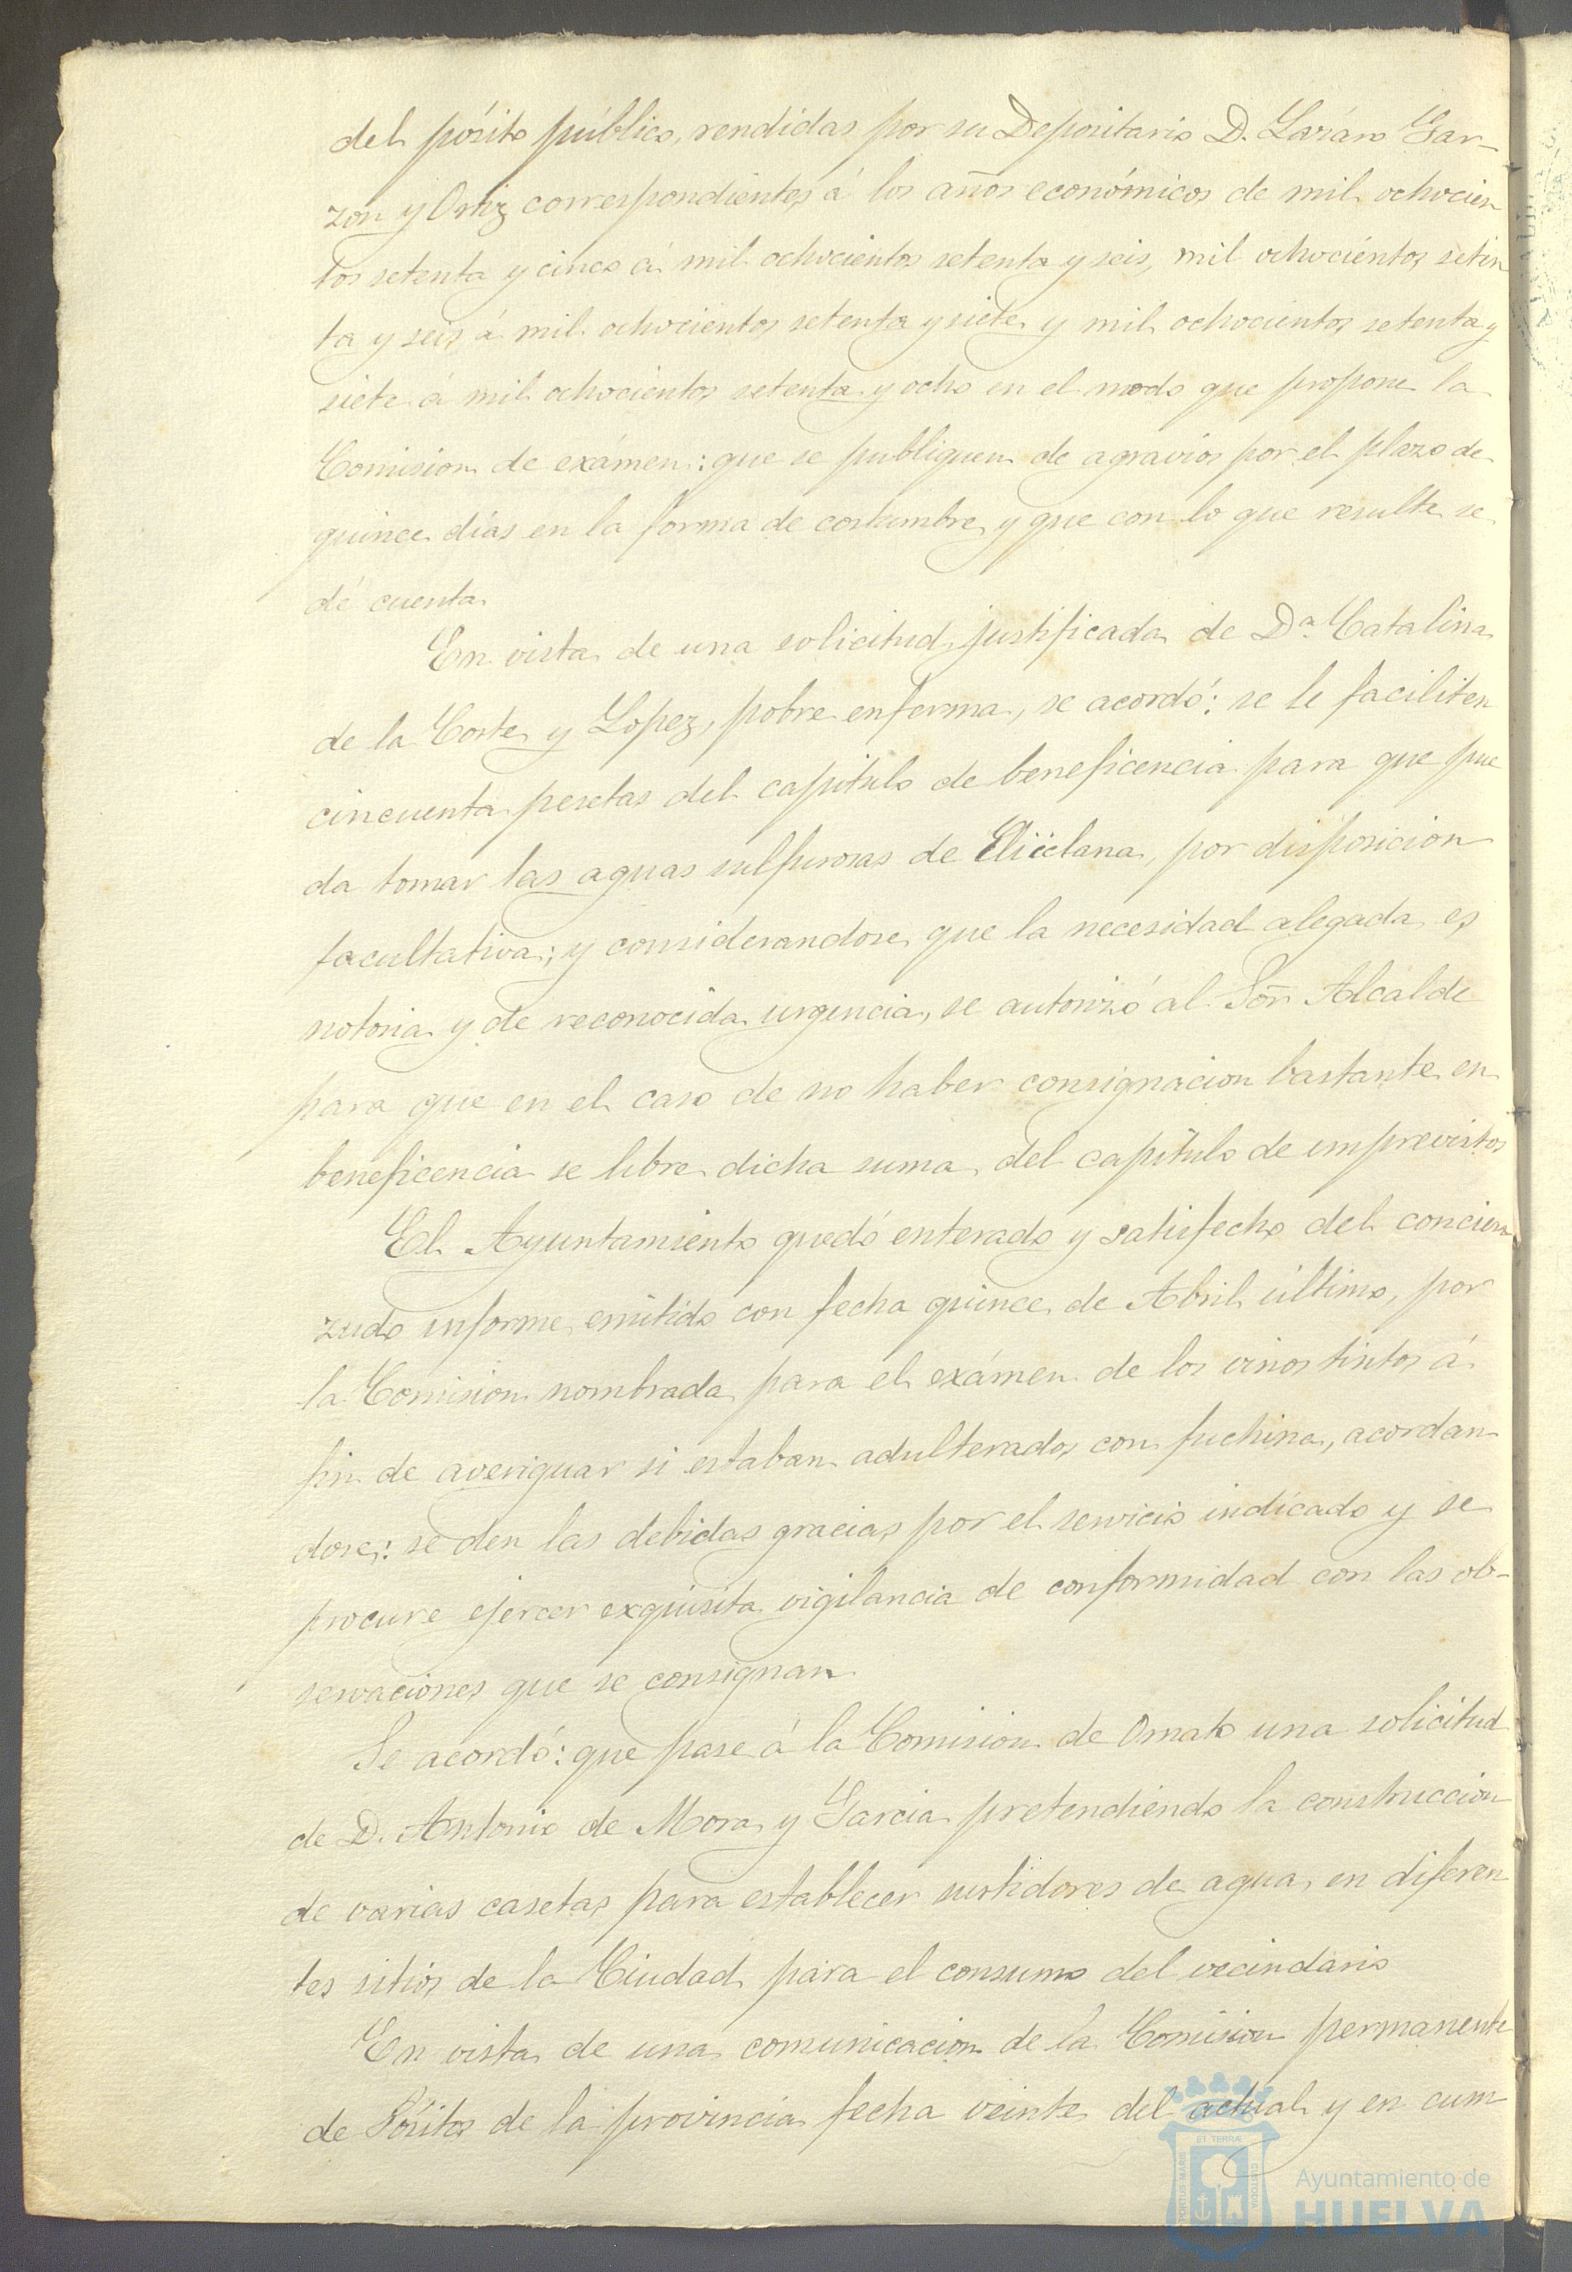 del pósito público, rendidas por su Depositario D. Lázaro Gar-
zon y Ortiz correspondientes á los años económicos de mil ochocien
tos setenta y cinco á mil ochocientos setenta y seis, mil ochocientos seten
ta y seis á mil ochocientos setenta y siete y mil ochocientos setenta y
siete á mil ochocientos setenta y ocho en el modo que propone la
Comision de exámen: que se publiquen de agravios por el plazo de
quince días en la forma de costumbre y que con lo que resulte se
dé cuenta
En vista de una solicitud justificada de Dª Catalina
de la Corte y Lopez, pobre enferma, se acordó: se le faciliten
cincuenta pesetas del capítulo de beneficencia para que pue
da tomar las aguas sulfurosas de Chiclana, por disposicion
facultativa; y considerandose que la necesidad alegada es
notoria y de reconocida urgencia, se autorizó al Sor Alcalde
para que en el caso de no haber consignacion bastante en
beneficencia se libre dicha suma del capítulo de imprevistos
El Ayuntamiento quedó enterado y satisfecho del concien
zudo informe emitido con fecha quince de Abril último, por
la Comision nombrada para el exámen de los vinos tintos á
fin de averiguar si estaban adulterados con fuchina, acordan
dose: se den las debidas gracias por el servicio indicado y se
procure ejercer exquisita vigilancia de conformidad con las ob-
servaciones que se consignan
Se acordó: que pase á la Comision de Ornato una solicitud
de D. Antonio de Mora y Garcia pretendiendo la construccion
de varias casetas para establecer surtidores de agua en diferen
tes sitios de la Ciudad para el consumo del vecindario
En vista de una comunicacion de la Comision permanente
de Pósitos de la provincia fecha veinte del actual y en cum
PORTUS MARIS ET TERRÆ CUSTODIA
Ayuntamiento de
HUELVA